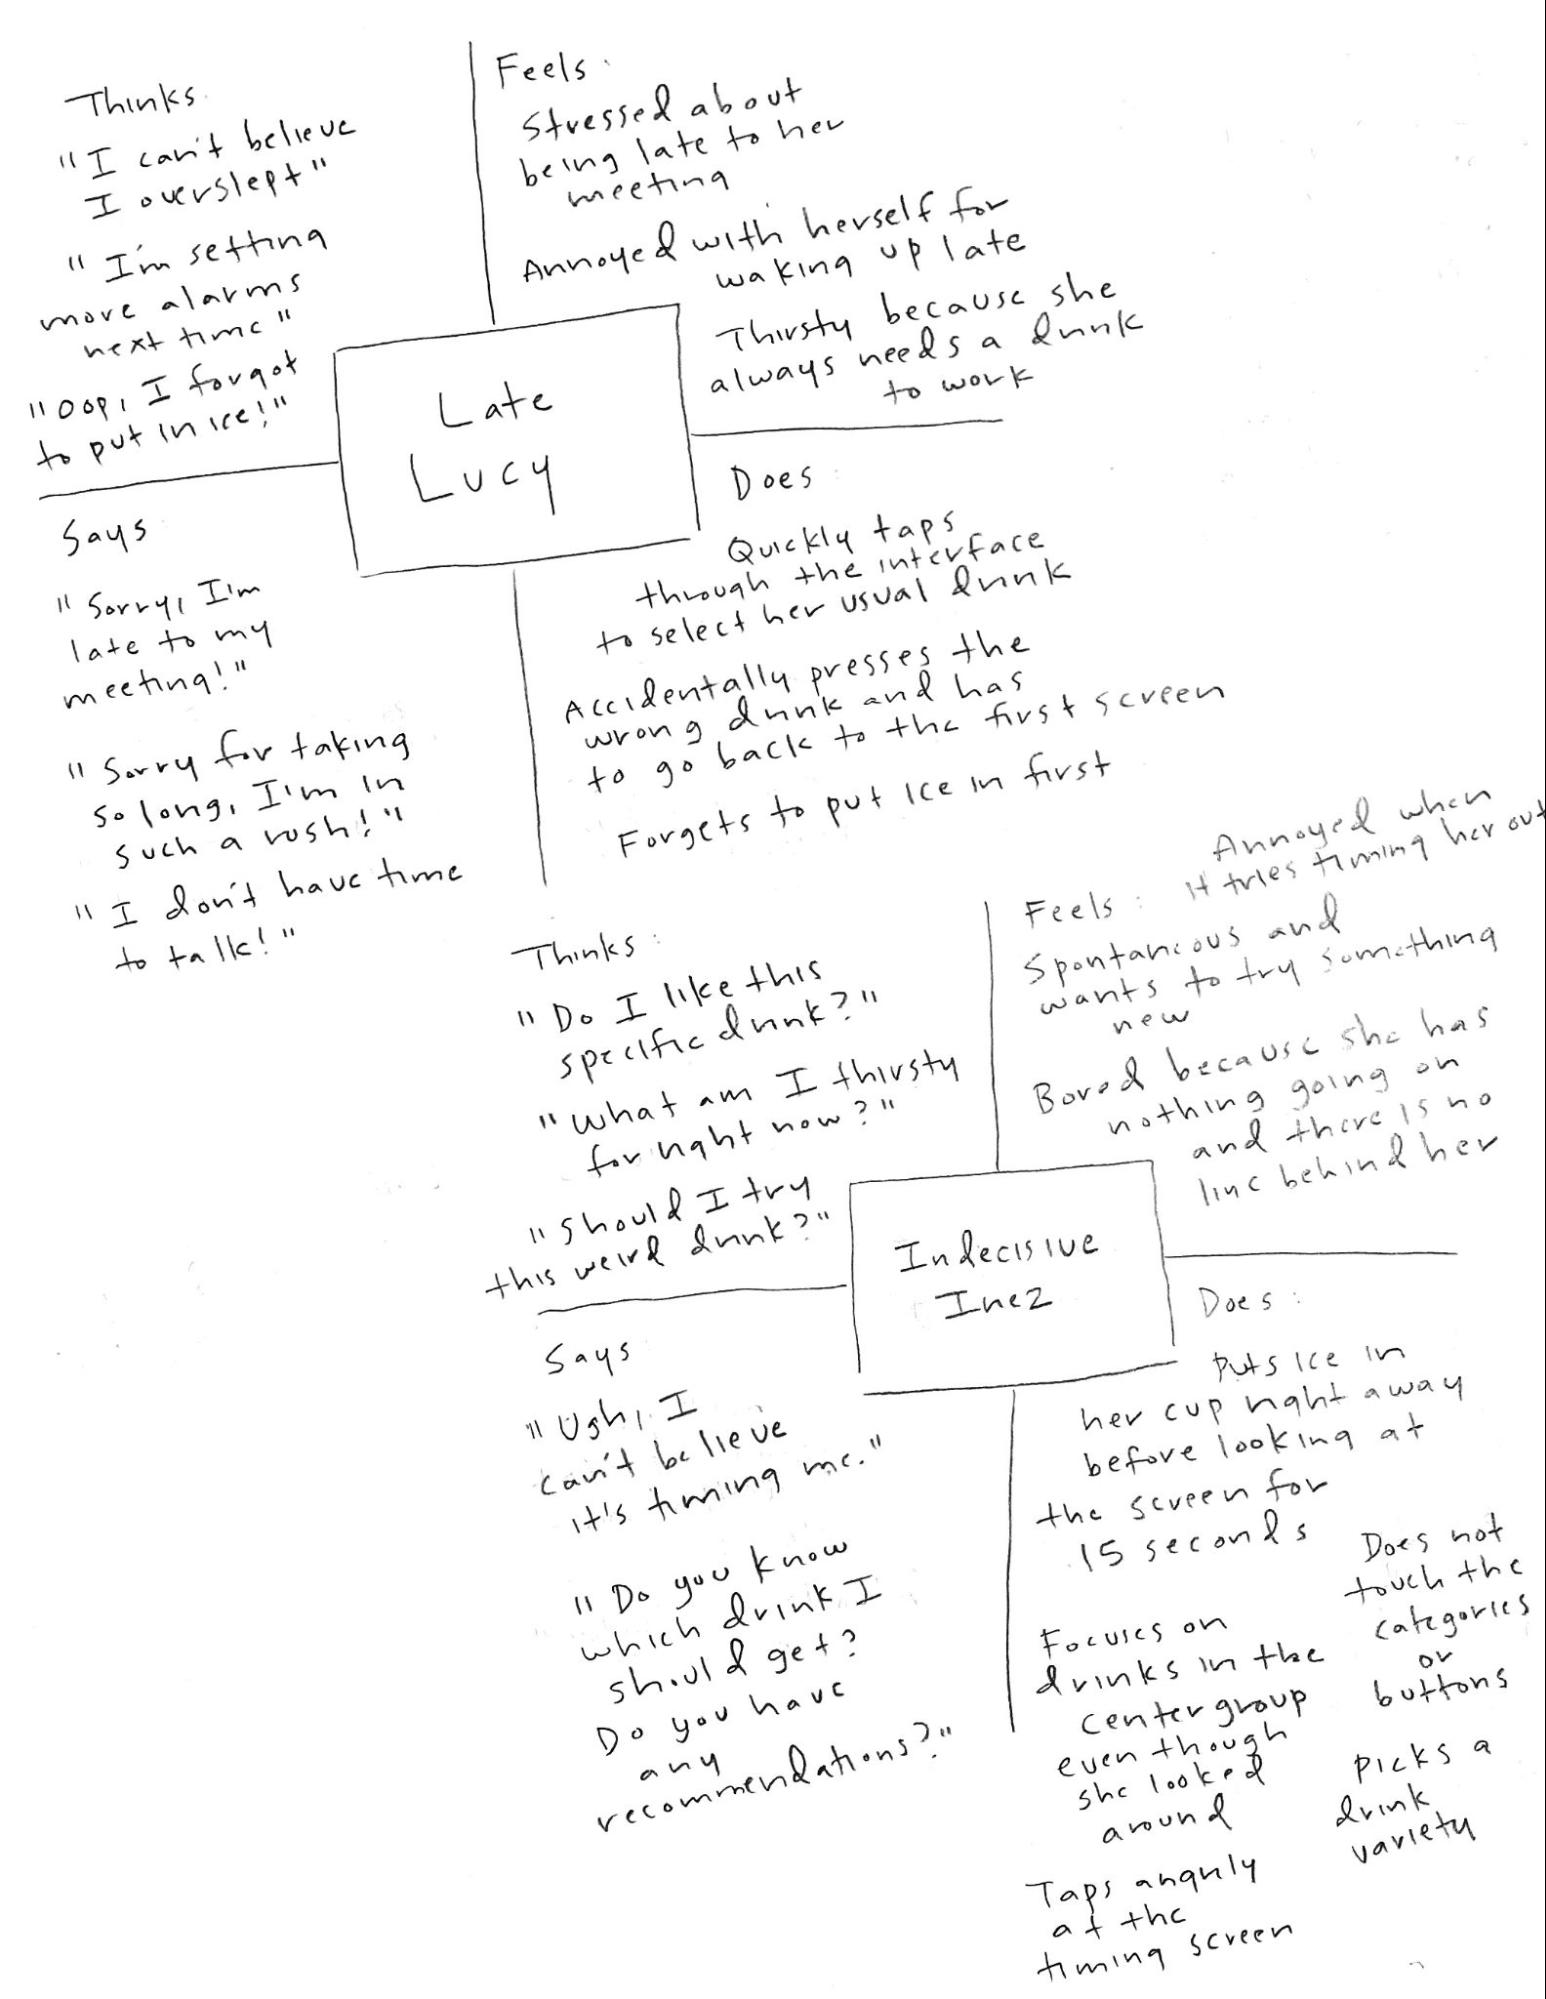 Thinks.
"I can't believe
I overslept"
"I'm setting
more alarms
next time"
"Oop, I forgot
to put in ice!"
Feels.
Stressed about
being late to her
meeting
Annoyed with herself for
waking up late
Thirsty because she
always needs a drink
to work
Late
Lucy
Says
"Sorry, I'm
late to my
meeting!"
"Sorry for taking
so long, I'm in
such a rush!"
"I don't have time
to talk!"
Does
Quickly taps
through the interface
to select her usual drink
Accidentally presses the
wrong drink and has
to go back to the first screen
Forgets to put ice in first
Thinks:
"Do I like this
specific drink?"
"What am I thirsty
for right now?"
"Should I try
this weird drink?"
Feels:
Annoyed when
it tries timing her out
Spontaneous and
wants to try something
new
Bored because she has
nothing going on
and there is no
line behind her
Indecisive
Inez
Says
"Ugh, I
can't believe
it's timing me."
"Do you know
which drink I
should get?
Do you have
any
recommendations?"
Does:
Puts ice in
her cup right away
before looking at
the screen for
15 seconds
Focuses on
drinks in the
center group
even though
she looked
around
Taps angrily
at the
timing screen
Does not
touch the
categories
or
buttons
Picks a
drink
variety